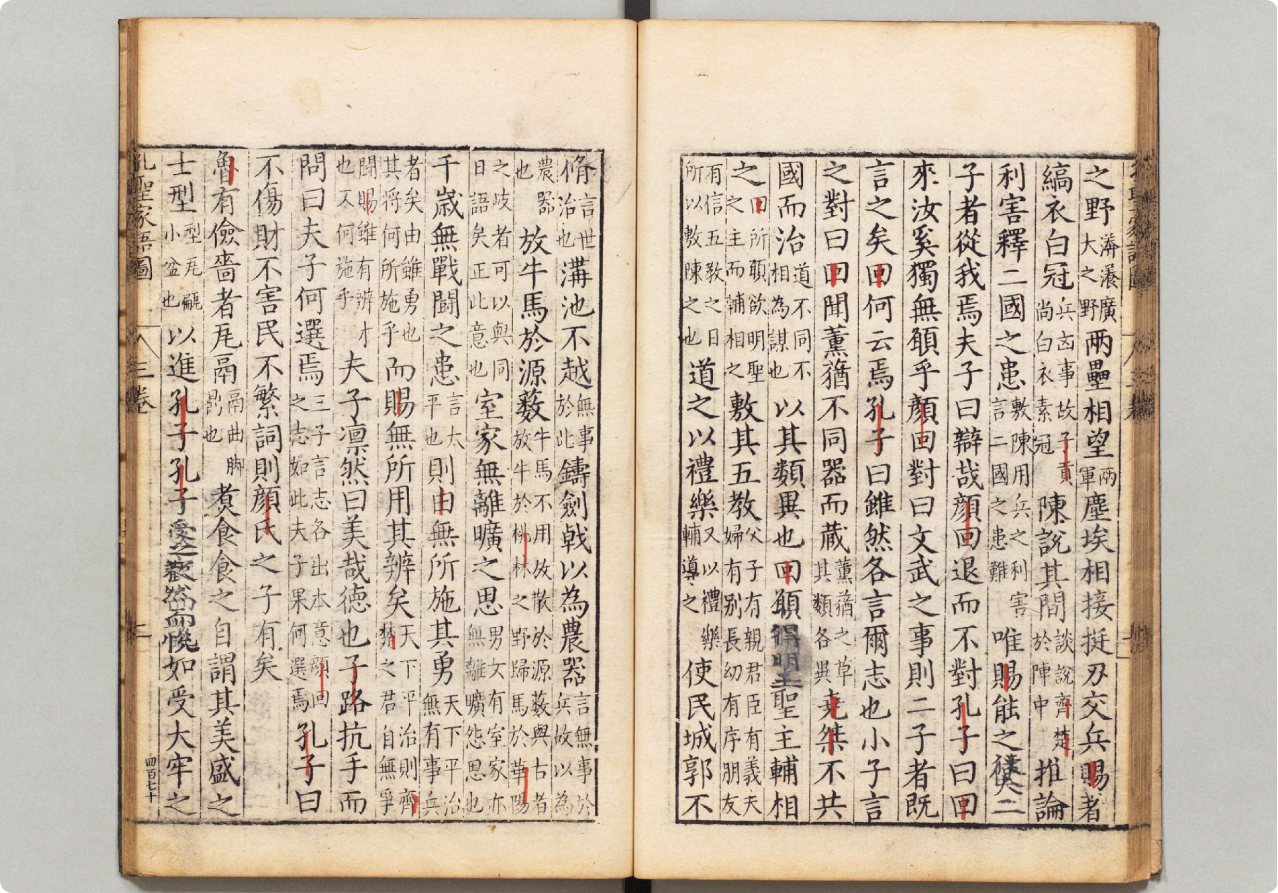 之野漭瀁廣大之野兩壘相望兩軍塵埃相接挺刃交兵賜者
縞衣白冠兵凶事故子貢尚白衣素冠陳說其間談說齊楚於陳中推論
利害釋二國之患敷陳用兵之利害言二國之患難唯賜能之使夫二
子者從我焉夫子曰辯哉顏回退而不對孔子曰回
來汝奚獨無願乎顏回對曰文武之事則二子者既
言之矣回何云焉孔子曰雖然各言爾志也小子言
之對曰回聞薰蕕不同器而藏薰蕕之草其類各異堯桀不共
國而治道不同不相為謀也以其類異也回願得明王聖主輔相
之回所願欲明聖之主而輔相之敷其五教父子有親君臣有義夫婦有別長幼有序朋友
有信五教之目所以敷陳之也道之以禮樂又以禮樂輔導之使民城郭不
脩言世治也溝池不越無事於此鑄劍戟以為農器言無事於兵故以為
農器也放牛馬於源藪牛馬不用故散於源藪與古者放牛於桃林之野歸馬於華陽
之歧者可以與同日語矣正此意也室家無離曠之思男女有室家亦無離曠怨思也
千歲無戰鬪之患言太平也則由無所施其勇天下平治無有事兵
者矣由雖勇也其將何所施乎而賜無所用其辨矣天下平治則齊楚之君自無爭
鬪賜雖有辨才也又何施乎夫子凜然曰美哉德也子路抗手而
問曰夫子何選焉三子言志各出本意顏回之志如此夫子果何選焉孔子曰
不傷財不害民不繁詞則顏氏之子有矣
魯有儉嗇者瓦鬲鬲曲脚鼎也煮食食之自謂其美盛之
士型型瓦甂小盆也以進孔子孔子受之歡然而悅如受大牢之
孔聖家語圖 八 三卷 二 四百七十